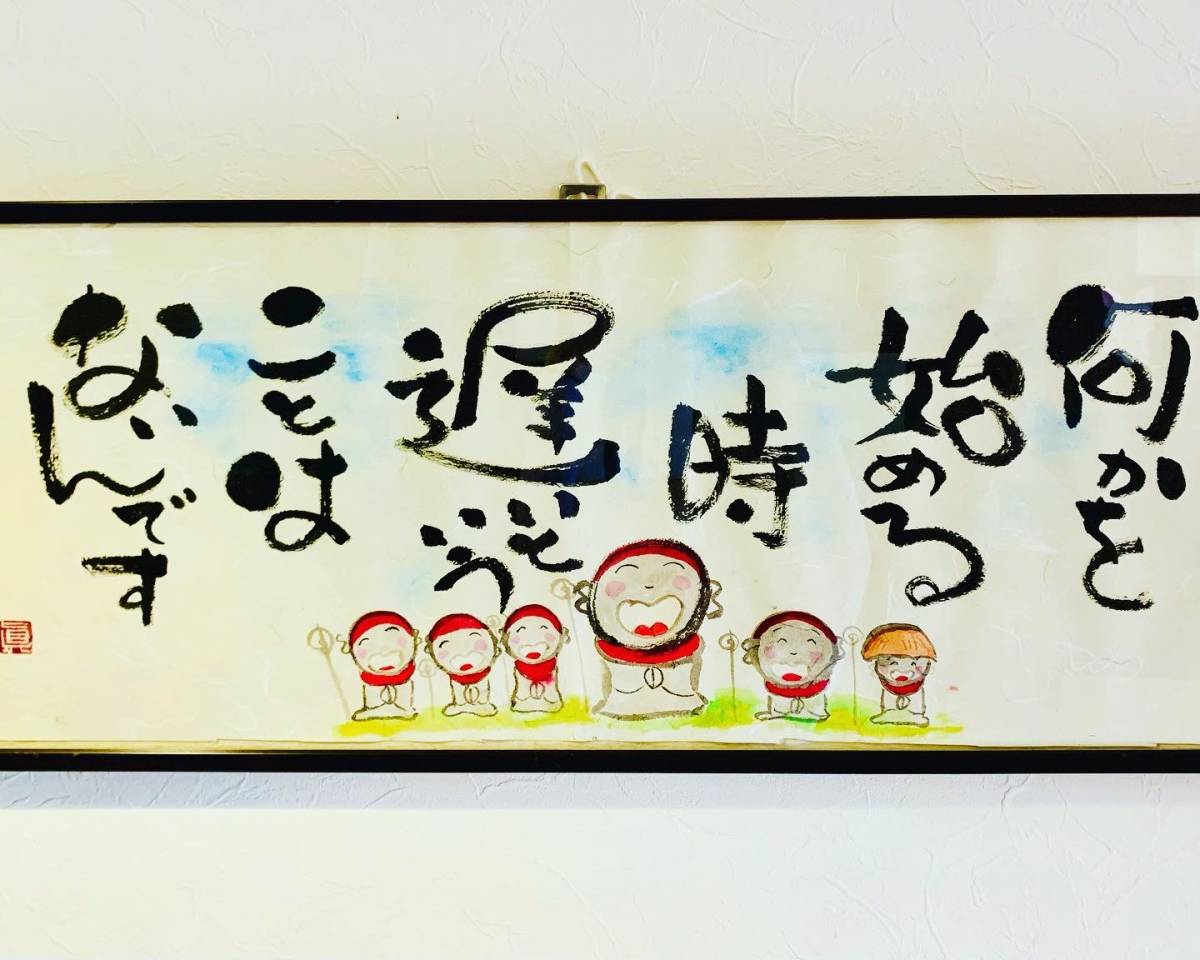 何かを
始める
時
遅いと
いう
ことは
ないんです
眞